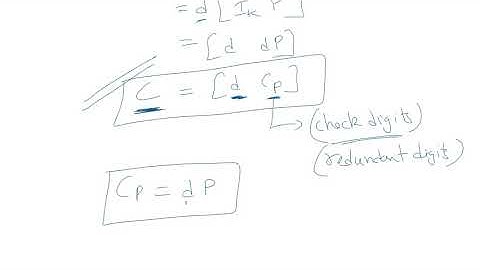 = d [ I_K P ]
= [ d dP ]
C = [ d C_P ]
(check digits)
(redundant digits)
C_P = d P